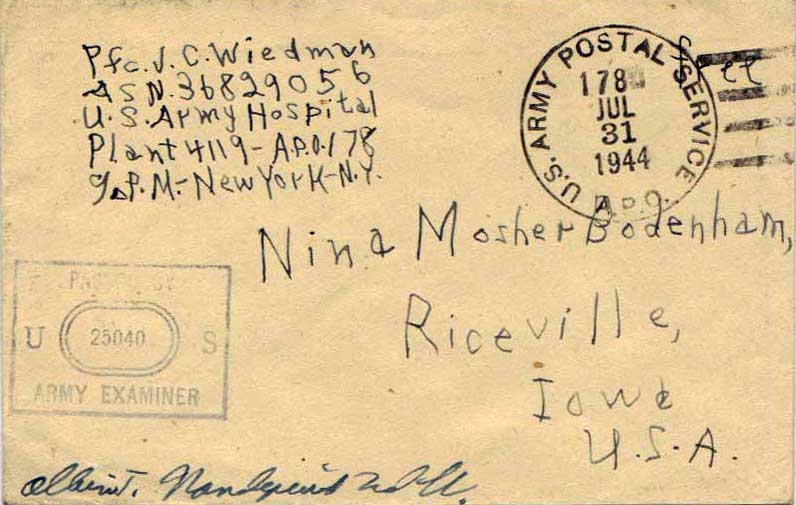 Pfc. J. C. Wiedman
ASN. 36829056
U.S. Army Hospital
Plant 4119 - A.P.O. 178
g.P.M. - New York - N.Y.
Free
U.S. ARMY POSTAL SERVICE
178
JUL
31
1944
A.P.O.
Nina Mosher Bodenham,
Riceville,
Iowa
U.S.A.
BY
U 25040 S
ARMY EXAMINER